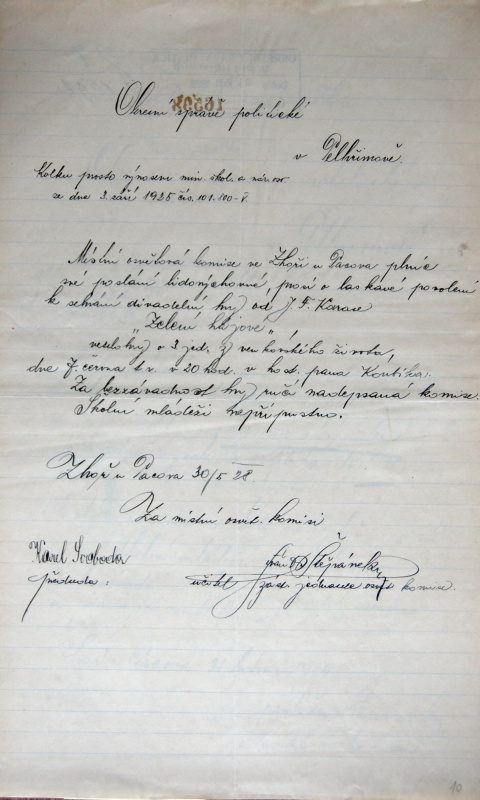 Okresní správě politické
v Pelhřimově.
Kolku prosto výnosem min. škol. a nár. osv.
ze dne 3. září 1925 čís. 101.100-V.
Místní osvětová komise ve Zhoři u Pacova plníc
své poslání lidovýchovné, prosí o laskavé povolení
k sehrání divadelní hry od J. F. Karase
"Zelení hájové",
veselohry o 3 jed. z venkovského života,
dne 7. června t.r. v 20 hod. v host. pana Koubíka.
Za bezzávadnost hry ručí nadepsaná komise.
Školní mládeži nepřípustno.
Zhoř u Pacova 30/5 28.
Za místní osvět. komisi
Karel Svoboda
předseda.
Štěpánek
učitel jednatel osvět komise.
10